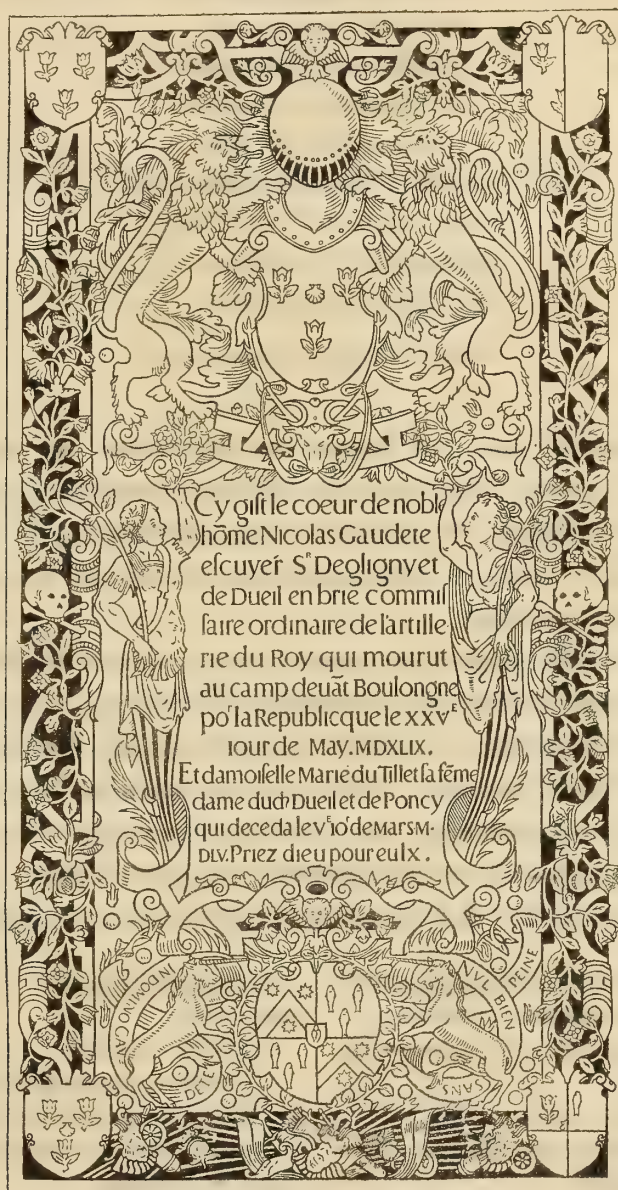 Cy giſt le coeur de noble
hōme Nicolas Gaudete
eſcuyer Sʳ Deglignyet
de Dueil en brie commiſ
ſaire ordinaire de lartille
rie du Roy qui mourut
au camp deuāt Boulongne
poʳ la Republicque le XXVᴱ
iour de May. MDXLIX.
Et damoiſelle Marie du Tillet ſa fēme
dame dud Dueil et de Poncy
qui deceda le vᴱ ioʳ de Mars M·
DLV. Priez dieu pour eulx.
IN DOMINO CAN
NVL BIEN
PEINE
SANS